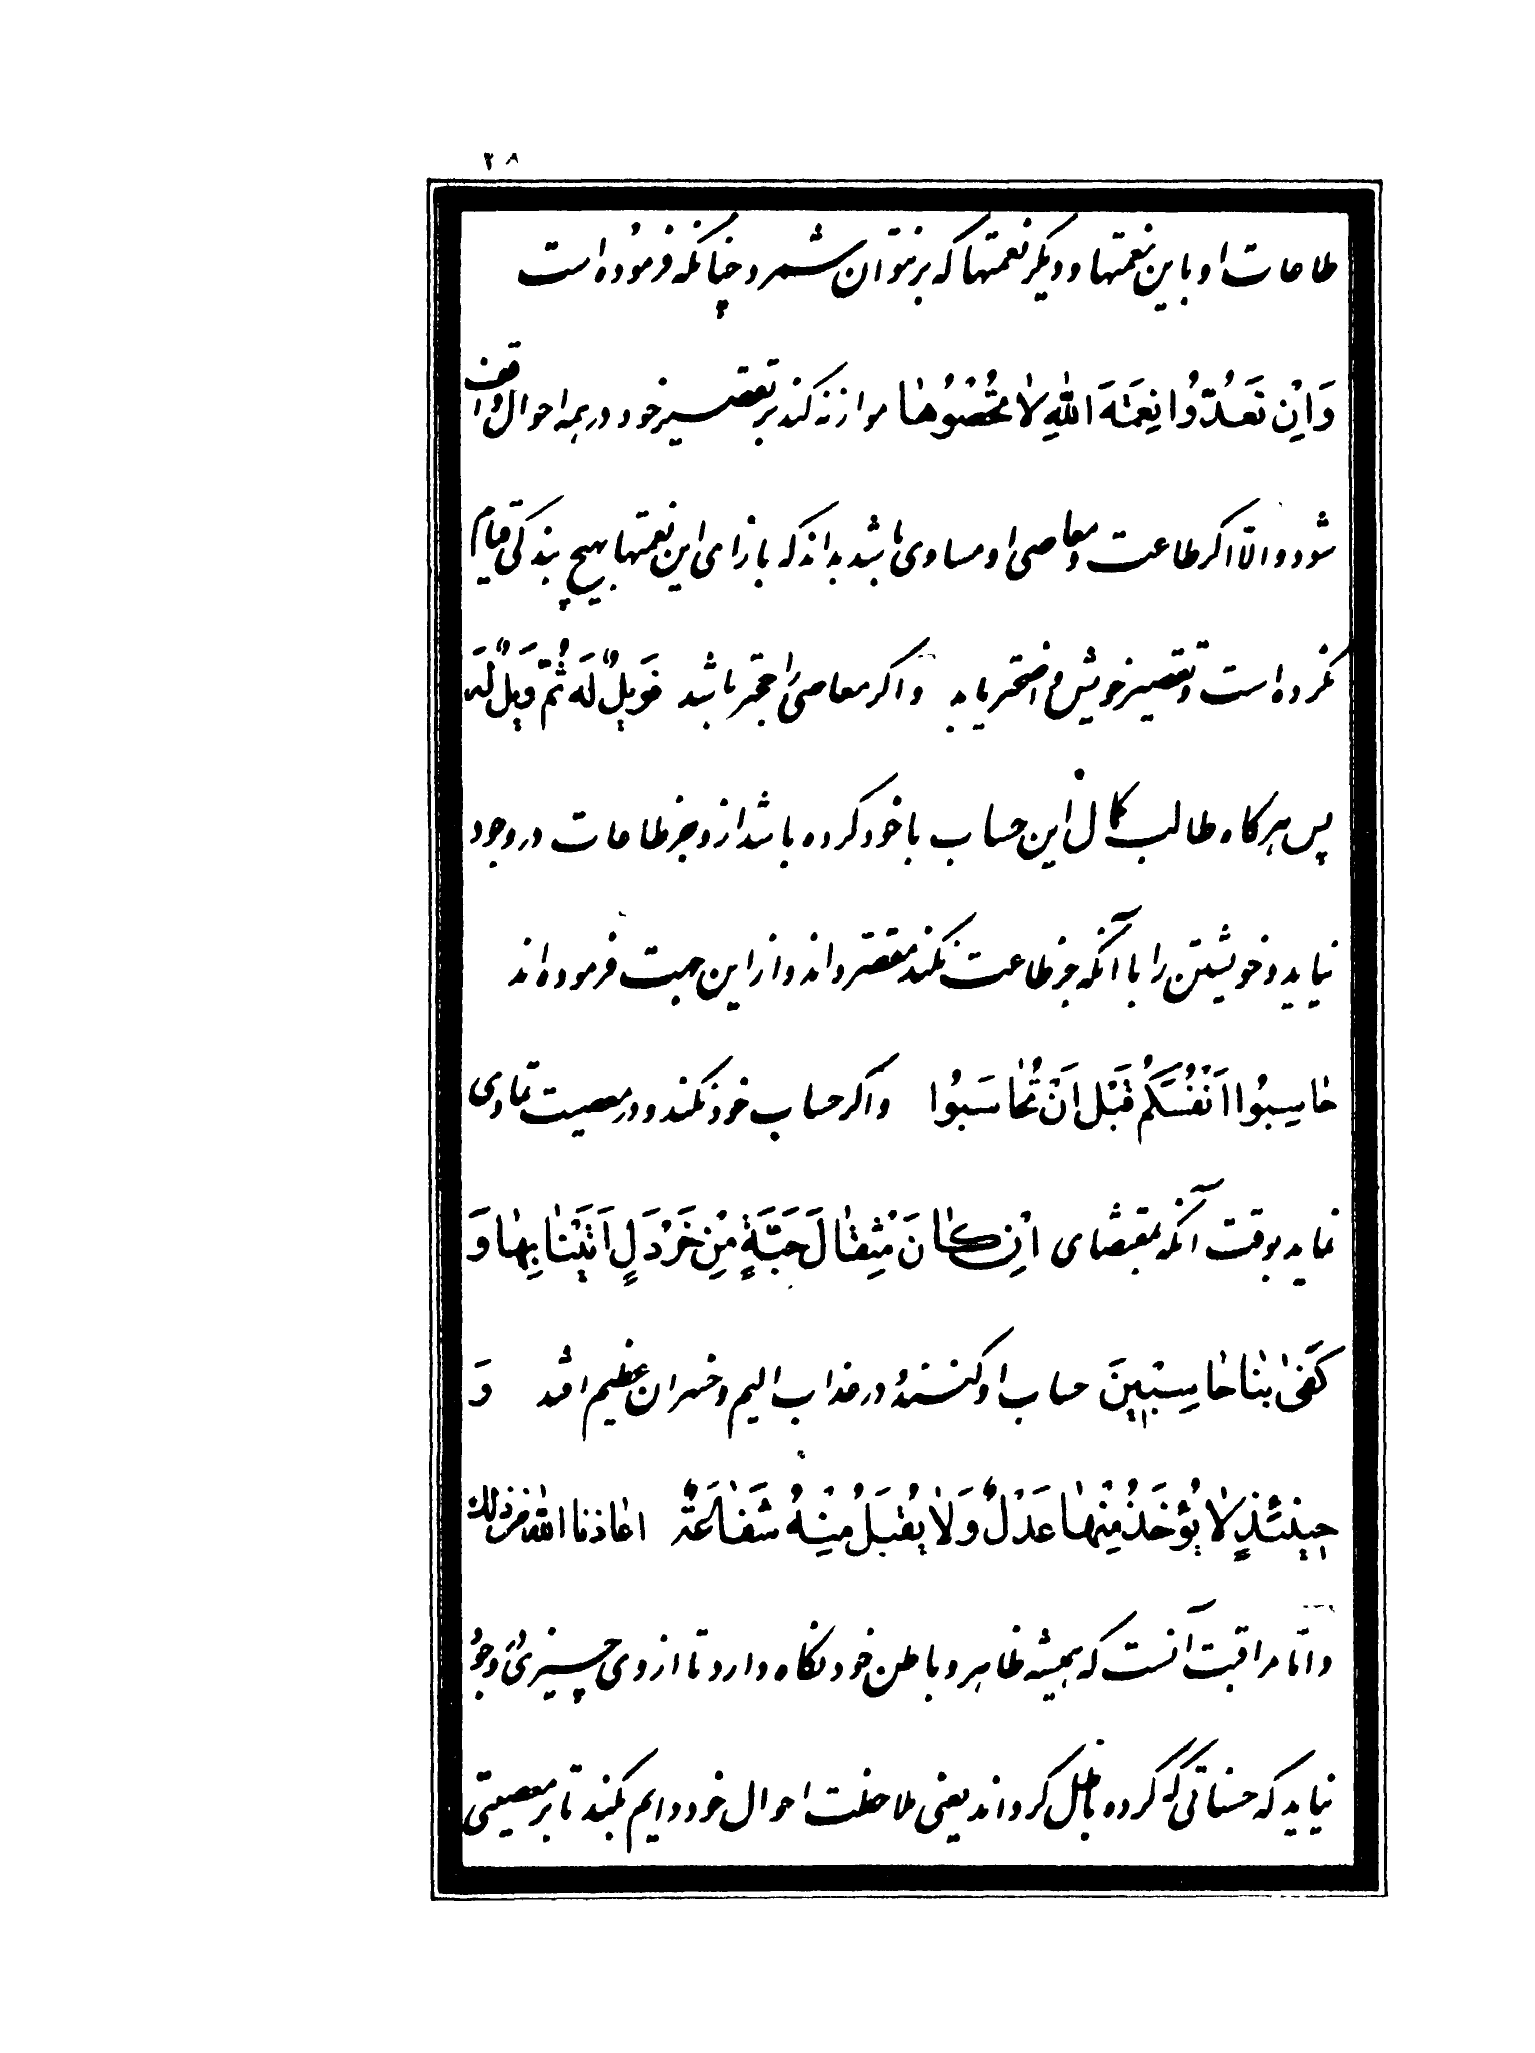 ۲۸
طاعات او با این نعمتها و دیگر نعمتها که بر نتوان شمرد چنانکه فرموده است
وَاِنْ تَعُدُّوا نِعْمَةَ اللهِ لاٰ تُحْصُوهٰا موازنه کند بر تقصیر خود در همه احوال واقف
شود و الّا اگر طاعت و معاصی او مساوی باشد بداند که بازای این نعمتها بهیچ بندگی قیام
نکرده است و تقصیر خویش واضحتر یابد و اگر معاصی راجحتر باشد فَوَیْلٌ لَهُ ثُمَّ وَیْلٌ لَهُ
پس هرگاه طالب کمال این حساب با خود کرده باشد از و جز طاعات در وجود
نیاید و خویشتن را با آنکه جز طاعت نکند مقصّر داند و از این جهت فرموده اند
حٰاسِبُوا اَنْفُسَکُمْ قَبْلَ اَنْ تُحٰاسَبُوا و اگر حساب خود نکند و در معصیت تمادی
نماید بوقت آنکه بمقتضای اِنْ کٰانَ مِثْقٰالَ حَبَّةٍ مِنْ خَرْدَلٍ اَتَیْنٰا بِهٰا وَ
کَفٰی بِنٰا حٰاسِبِینَ حساب او کنند در عذاب الیم و خسران عظیم افتد وَ
حِینَئِذٍ لاٰ یُؤْخَذُ مِنْهٰا عَدْلٌ وَلاٰ یُقْبَلُ مِنْهُ شَفٰاعَةٌ اعاذنا الله من ذلك
و امّا مراقبت آنست که همیشه ظاهر و باطن خود نگاه دارد تا از وی چیزی در وجود
نیاید که حسناتی که کرده باطل گرداند یعنی ملاحظت احوال خود دایم بکند تا بر معصیتی